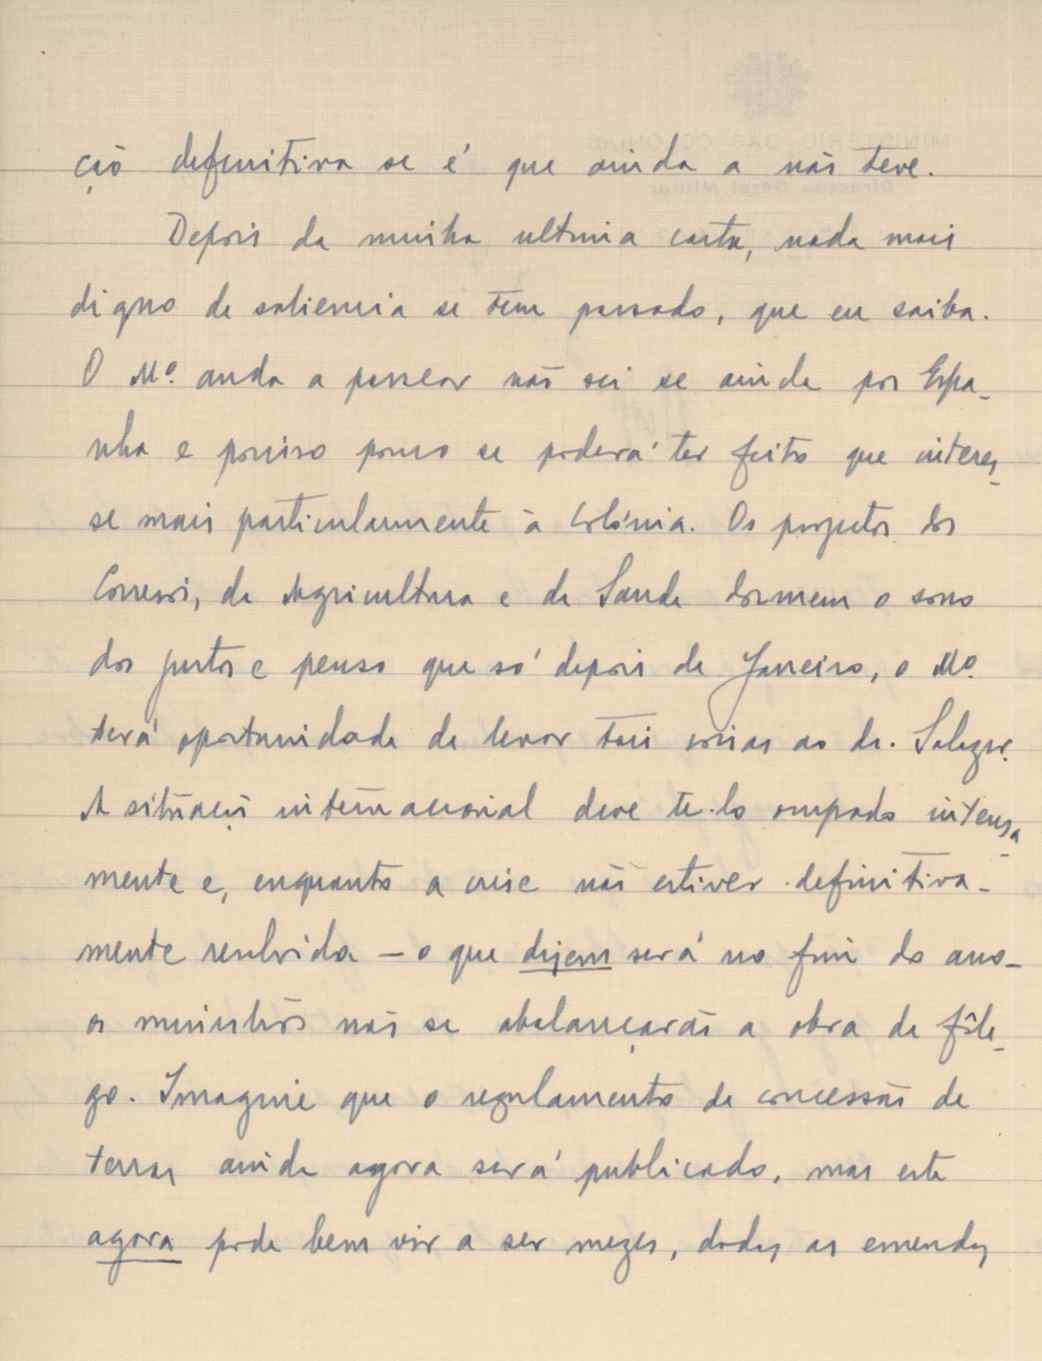 ção definitiva se é que ainda a não teve.
Depois da minha ultima carta, nada mais
digno de saliencia se tem passado, que eu saiba.
O Mº. anda a passear não sei se ainda por Espa-
nha e porisso pouco se poderá ter feito que interes-
se mais particularmente à Colónia. Os projetos dos
Correios, da Agricultura e da Saude dormem o sono
dos justos e penso que só depois de Janeiro, o Mº.
terá oportunidade de levar tais coisas ao dr. Salazar.
A situação internacional deve te-lo ocupado intensa
mente e, enquanto a crise não estiver definitiva-
mente resolvida — o que dizem será no fim do ano —
os ministros não se abalançarão a obra de fôle-
go. Imagine que o regulamento de concessão de
terras ainda agora será publicado, mas este
agora pode bem vir a ser mezes, dadas as emendas
MINISTÉRIO DAS COLÓNIAS
Direcção Geral Militar